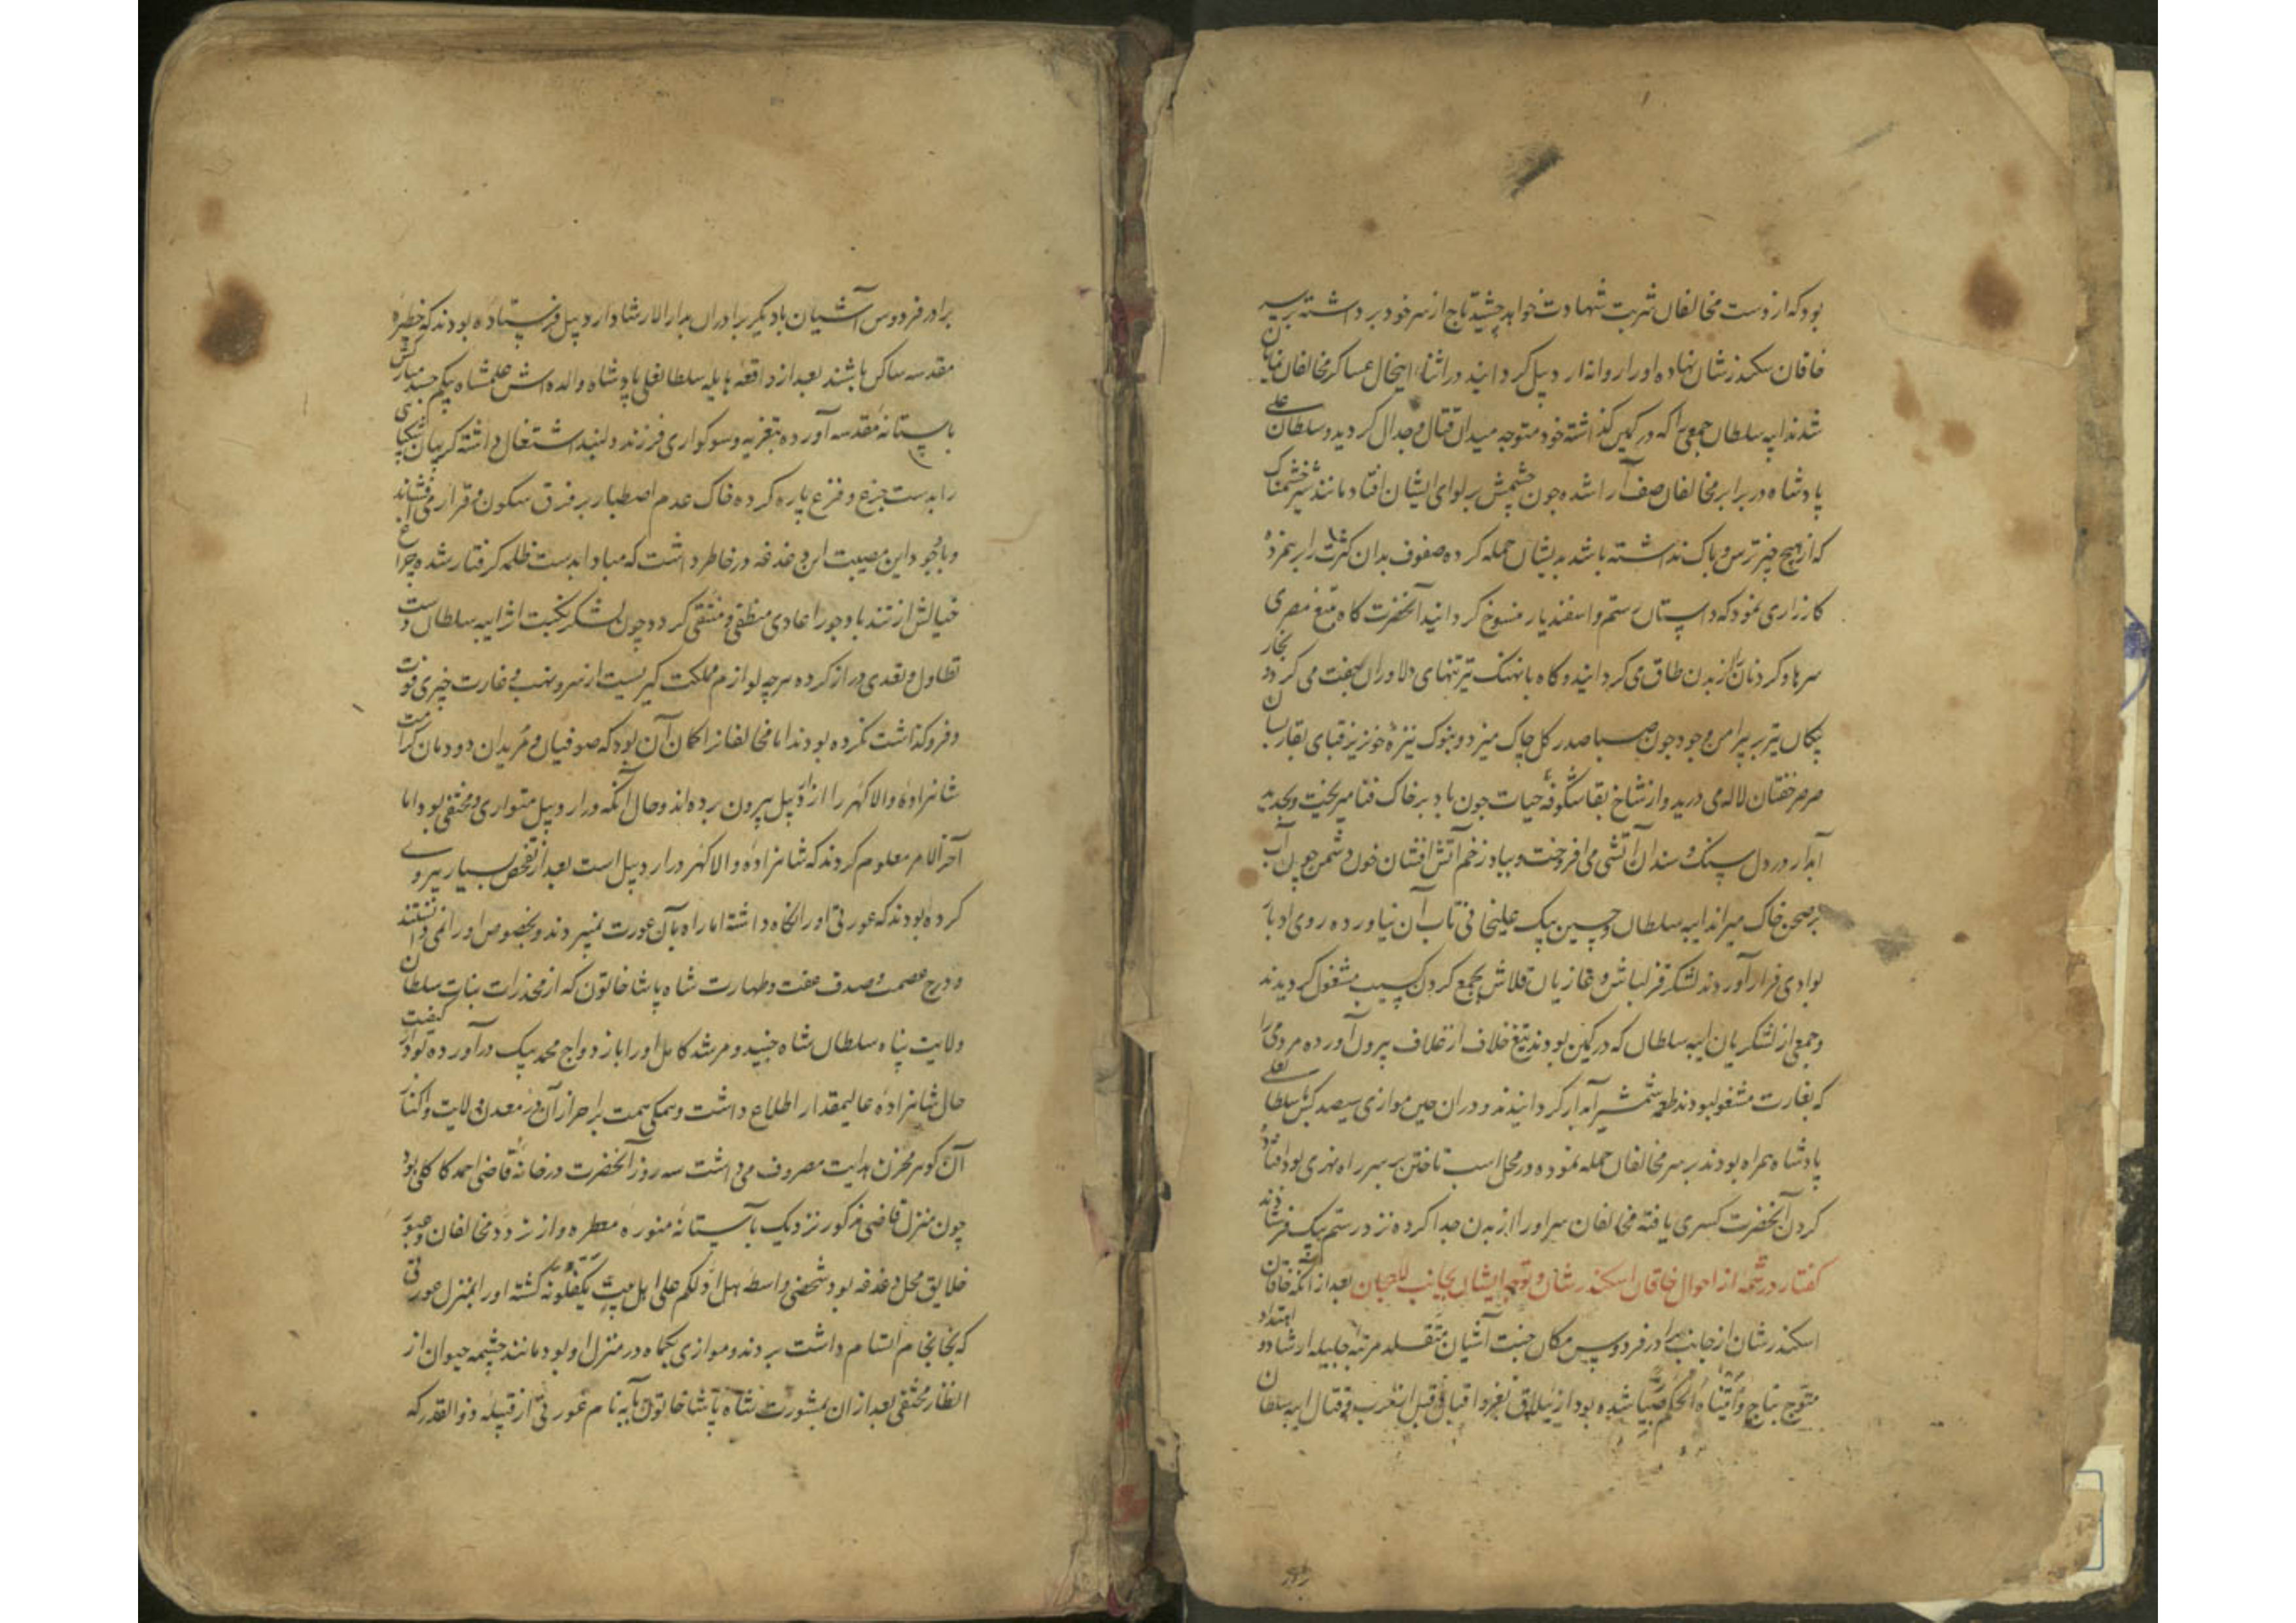 بود که از دست مخالفان شربت شهادت خواهد چشید تاج از سر خود برداشته بر سر
خاقان سکندرشان نهاده او را روانه اردبیل گردانیند در اثناء اینحال عساکر مخالفان نمایان
شدند ایبه سلطان جمعی را که در کمین گذاشته خود متوجه میدان قتال و جدال گردید و سلطانعلی
پادشاه در برابر مخالفان صف آرا شده چون چشمش بر لوای ایشان افتاد مانند شیر خشمناک
که از هیچ چیز ترس و باک نداشته باشد بدیشان حمله کرده صفوف بدان کثرت را بر هم زده
کارزاری نمود که داستان رستم و اسفندیار منسوخ گردانید آنحضرت گاه بتیغ مصری
سرها و گردنان از بدن طاق می گردانید و گاه با نهنگ تیر تنهای دلاوران جفت می کرد و بخار
پیکان تیر بر پیراهن وجود چون صبا صدر گل چاک میزد و بنوک نیزه خونریز قبای بقا را بسان
صرصر خفتان لاله می درید و از شاخ بقا شکوفه حیات چون باد بر خاک فنا میریخت و بجد
آبدار در دل سنگ و سندان آتشی می افروخت و بباد زخم آتش افشان خون دشمن چون آب
بر صحن خاک میراند ایبه سلطان و حسین بیک علیخانی تاب آن نیاورده روی ادبار
بوادی فرار آوردند لشکر قزلباش و غازیان قلاش بجمع کردن کسیب مشغول گردیدند
و جمعی از لشکریان ایبه سلطان که در کمین بودند تیغ خلاف از غلاف بیرون آورده مردمی را
که بغارت مشغول بودند طعمه شمشیر آبدار گردانیدند و در آن حین موازی سیصد کس با سلطانعلی
پادشاه همراه بودند بر سر مخالفان حمله نموده در محل اسب تاختن بر سر راه نهری بود افتاده
گردن آنحضرت کسری یافته مخالفان سر او را از بدن جدا کرده نزد رستم بیک فرستادند
گفتار در شمه از احوال خاقان اسکندرشان و توجه ایشان بجانب لاهجان بعد از آنکه خاقان
اسکندرشان از جانب برادر فردوس مکان جنت آشیان متقلد مرتبه جلیله ارشاد و
متوج بتاج و آتیناه الحکم صبیا شده بود از ییلاق قبل از حرب و قتال ایبه سلطان
برادر فردوس آشیان با دیگر برادران بدار الارشاد اردبیل فرستاده بودند که حظیره
مقدسه ساکن باشند بعد از واقعه هایله سلطانعلی پادشاه والده اش علمشاه بیکم جسد مبارکش
بآستانه مقدسه آورده بتعزیه و سوگواری فرزند دلبند اشتغال داشته گریبان شکیبا
را بدست جزع و فزع پاره کرده خاک عدم اصطبار بر فرق سکون و قرار می افشاند
و باوجود این مصیبت این دغدغه در خاطر داشت که مبادا بدست ظلمه گرفتار شده چراغ
خیالش از تندباد جور اعادی منطفی و منتفی گردد چون لشکر نکبت اثر ایبه سلطان دست
تطاول و تعدی دراز کرده هرچه لوازم مملکت گیریست از سر و نهب و غارت چیزی فوت
و فروگذاشت نکرده بودند اما مخالفانرا گمان آن بود که صوفیان و مریدان دودمان کرامت
شاهزاده والاگهر را از اردبیل بیرون برده اند و حال آنکه در اردبیل متواری و مختفی بود اما
آخر الامر معلوم کردند که شاهزاده والاگهر در اردبیل است بعد از تفحص بسیار پیروی
کرده بودند که عورتی او را نگاه داشته اما راه بآن عورت نمیبردند و بخصوص او را نمی دانستند
و درج عصمت و صدف عفت و طهارت شاه پاشا خاتون که از مخدرات بنات سلطان
ولایت پناه سلطان شاه جنید و مرشد کامل او را بازدواج محمد بیک درآورده بود از کیفیت
حال شاهزاده عالیمقدار اطلاع داشت و همگی همت بر احراز آن در معدن ولایت و اکناز
آن گوهر مخزن هدایت مصروف می داشت سه روز آنحضرت در خانه قاضی احمد کاکلی بود
چون منزل قاضی مذکور نزدیک بآستانه منوره مطهره و از تردد مخالفان و عبور
خلایق محل دغدغه بود شخصی واسطه هل ادلکم علی اهل بیت یکفلونه گشته او را بمنزل عورتی
که بخانخانم اتسام داشت بردند و موازی یکماه در منزل او بود مانند چشمه حیوان از
انظار مختفی بعد از آن بمشورت شاه پاشا خاتون بآبه نام عورتی از قبیله ذوالقدر که